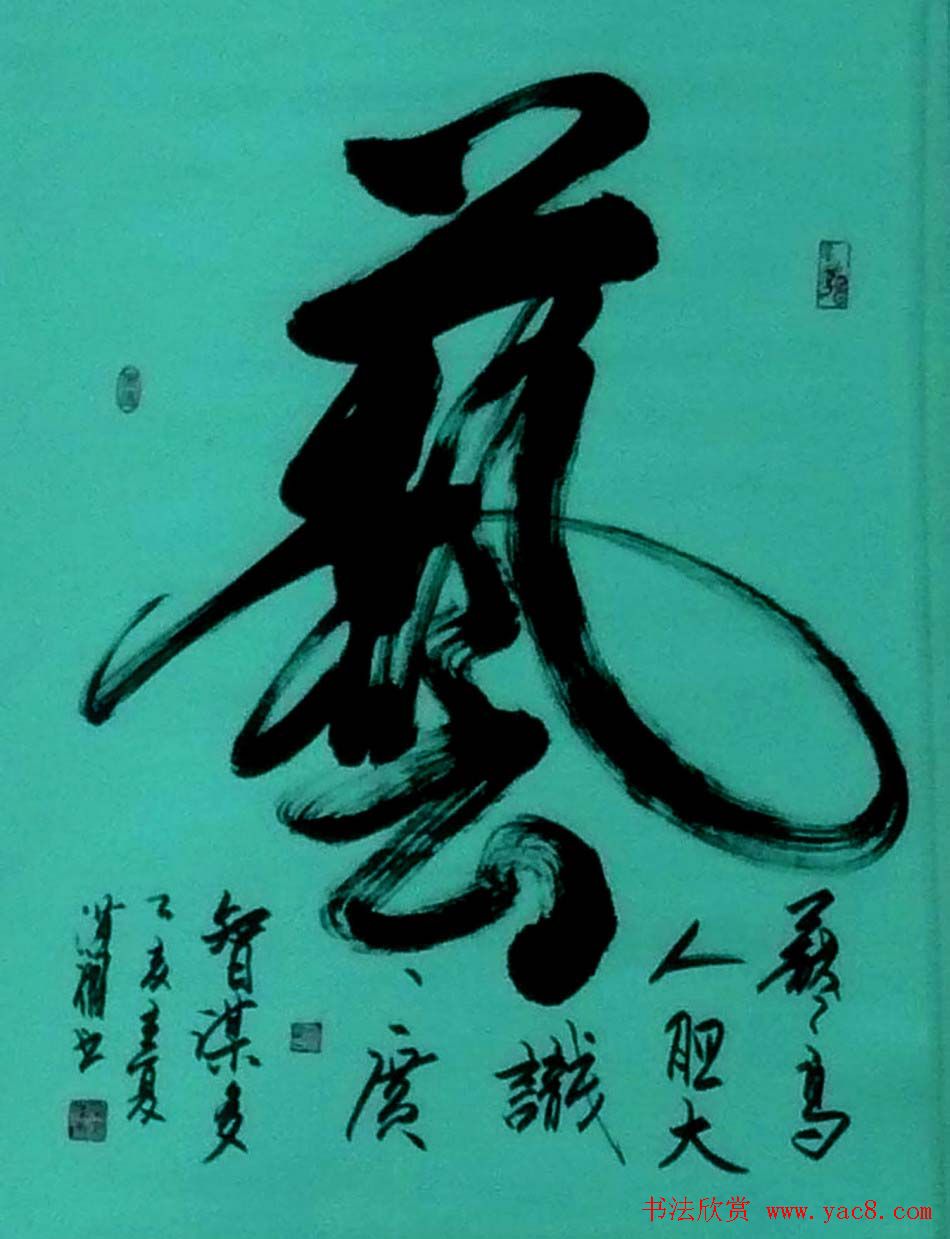 藝
藝高
人胆大
識
廣
智謀多
乙亥夏
书法欣赏 www.yac8.com